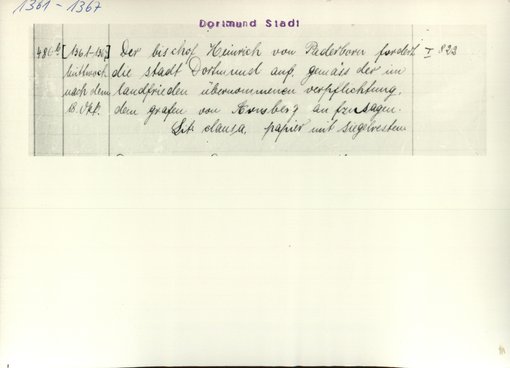 1361-1367
Dortmund Stadt
486b [1361-1367] Der bischof Heinrich von Paderborn fordert I 823
mittwoch die stadt Dortmund auf, gemäss der im
nach dem landfrieden übernommenen verpflichtung,
dem grafen von Arnsberg anzusagen.
Lit. clausa papier mit siegelresten